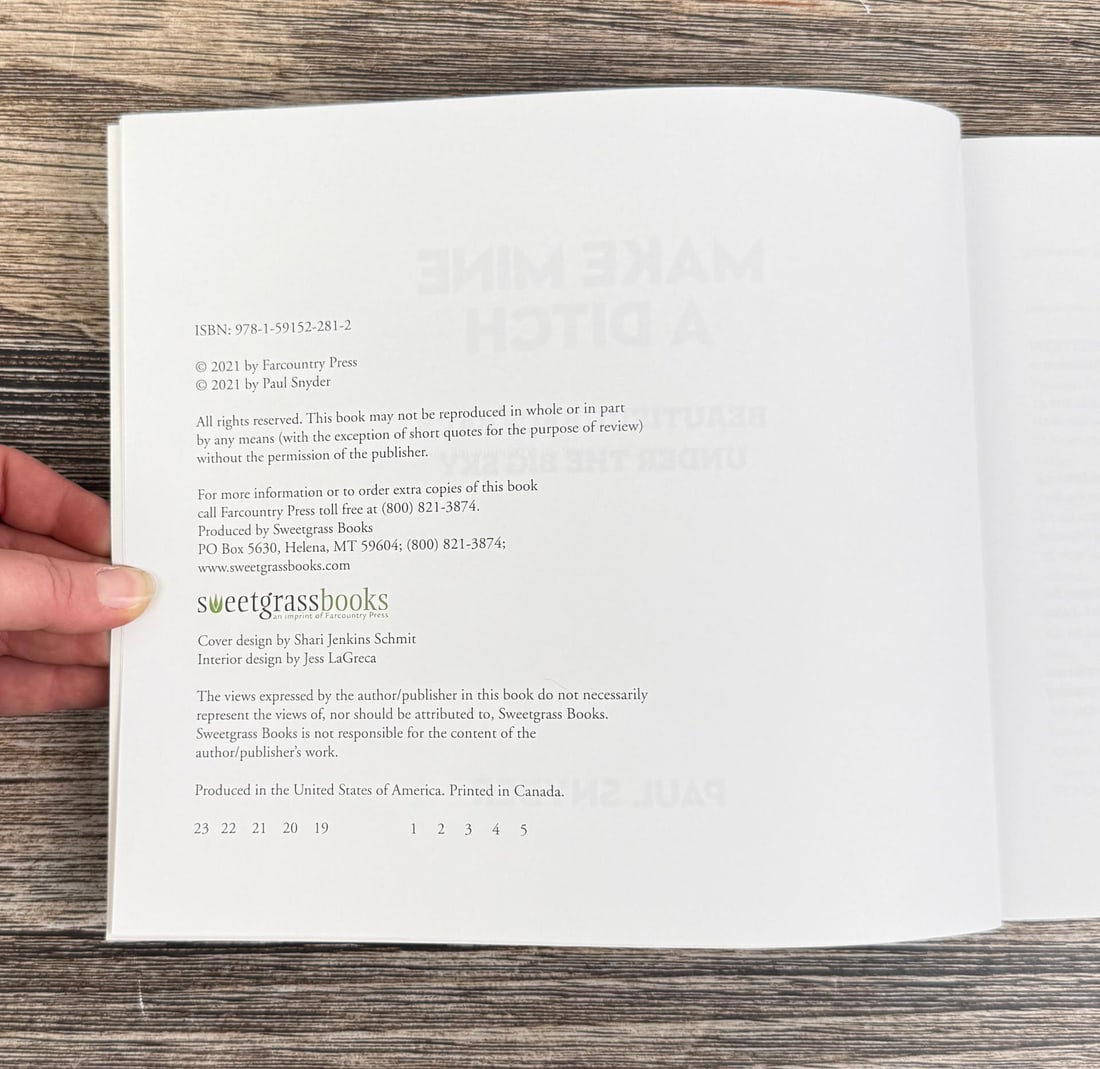 ISBN: 978-1-59152-281-2
© 2021 by Farcountry Press
© 2021 by Paul Snyder
All rights reserved. This book may not be reproduced in whole or in part
by any means (with the exception of short quotes for the purpose of review)
without the permission of the publisher.
For more information or to order extra copies of this book
call Farcountry Press toll free at (800) 821-3874.
Produced by Sweetgrass Books
PO Box 5630, Helena, MT 59604; (800) 821-3874;
www.sweetgrassbooks.com
sweetgrassbooks
an imprint of Farcountry Press
Cover design by Shari Jenkins Schmit
Interior design by Jess LaGreca
The views expressed by the author/publisher in this book do not necessarily
represent the views of, nor should be attributed to, Sweetgrass Books.
Sweetgrass Books is not responsible for the content of the
author/publisher's work.
Produced in the United States of America. Printed in Canada.
23 22 21 20 19 1 2 3 4 5
MAKE MINE
A DITCH
UNDER THE BIG SKY
PAUL SNYDER